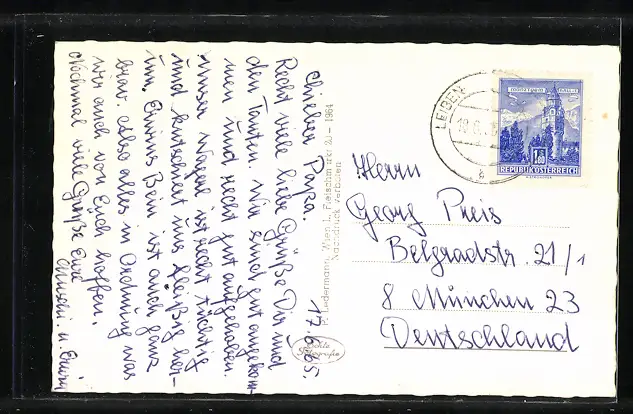 17.6.65.
Lieber Papa.
Recht viele liebe Grüße Dir und
den Tanten. Wir sind gut angekom
men und recht gut aufgehoben.
Unser Wagen ist recht tüchtig
und kutschiert uns fleißig her-
um. Erwins Bein ist auch ganz
brav. Also alles in Ordnung was
wir auch von Euch hoffen.
Nochmal viele Grüße Eure
u.
P. Ledermann, Wien I., Fleischmarkt 20 – 1964
Nachdruck verboten
Echte
Fotografie
LEIBEN
MÜNZTURM HALL i.T.
1.80
REPUBLIK ÖSTERREICH
Herrn
Georg Preis
Belgradstr. 21/1
8 München 23
Deutschland